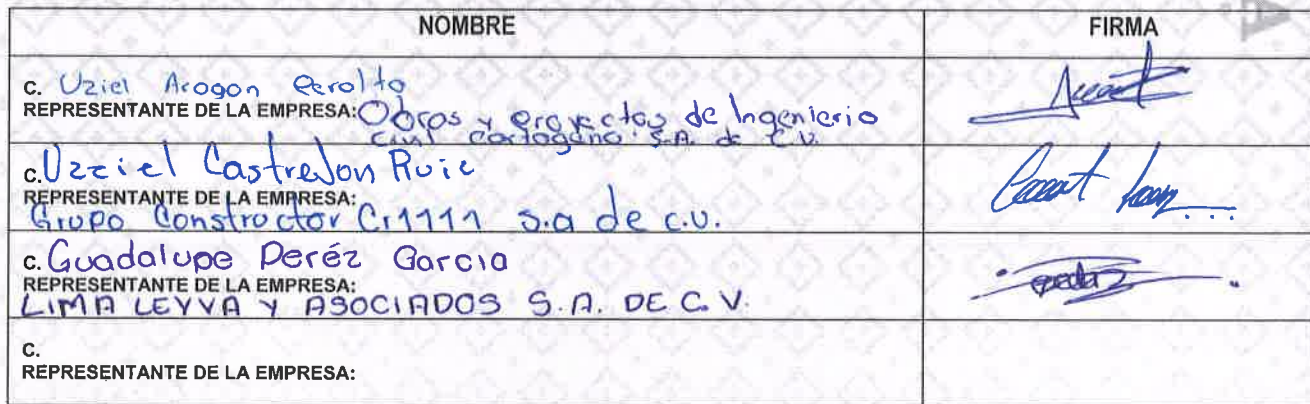 NOMBRE FIRMA
C. Uziel Aragon Peralta
REPRESENTANTE DE LA EMPRESA: Obras y proyectos de Ingenieria
Civil Cartagena S.A. de C.V.
C. Uzziel Castrejon Ruiz
REPRESENTANTE DE LA EMPRESA:
Grupo Constructor Cr1111 s.a de c.v.
C. Guadalupe Peréz Garcia
REPRESENTANTE DE LA EMPRESA:
LIMA LEYVA Y ASOCIADOS S.A. DE C.V.
C.
REPRESENTANTE DE LA EMPRESA: